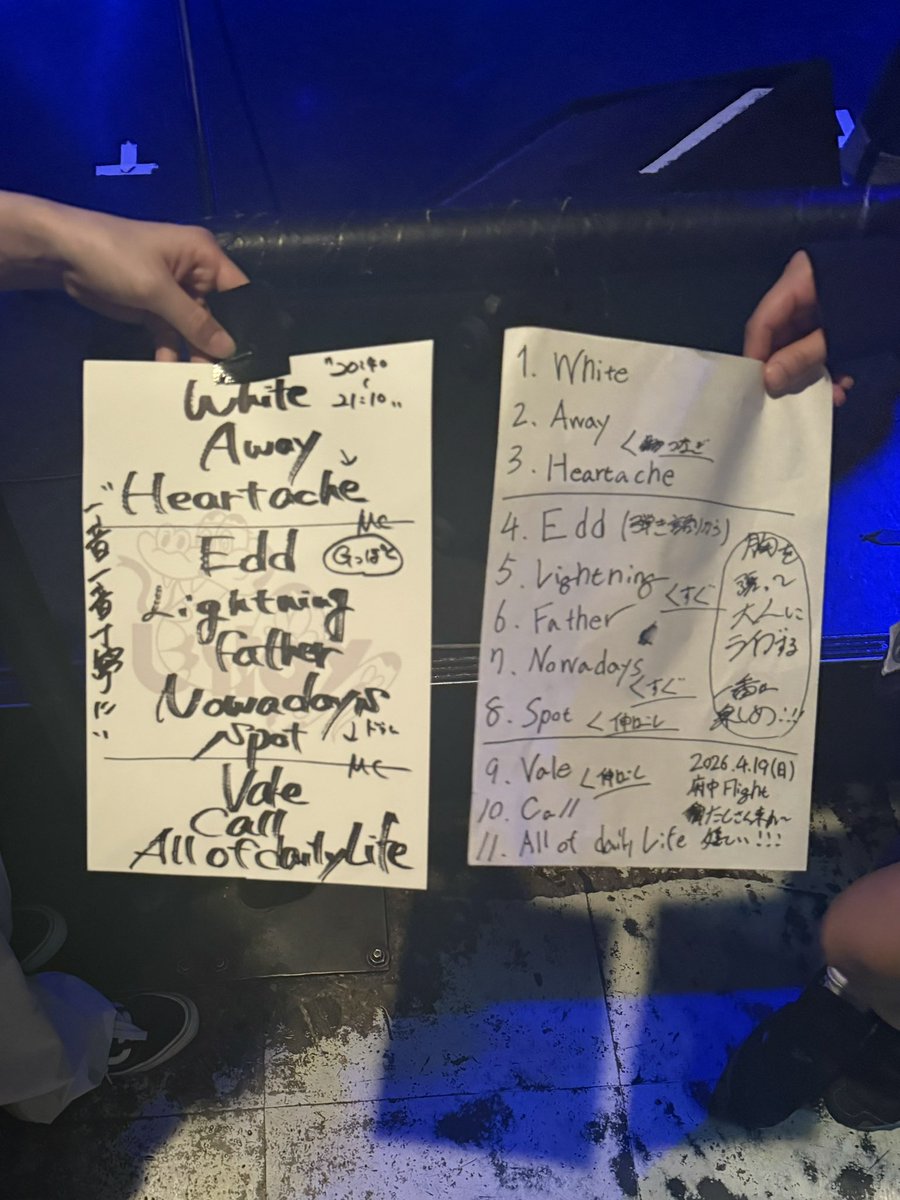 White
"20:40
21:10"
Away
"Heartache
MC
Edd
Lightning
Father
Nowadays
Spot
MC
Vale
Call
All of daily Life
一音一音丁寧に"
1. White
2. Away
つなぎ
3. Heartache
4. Edd (弾き語りから)
5. Lightning
くすぐ
6. Father
7. Nowadays
くすぐ
8. Spot
9. Vale
10. Call
11. All of daily Life
胸を
張って
大人に
ライブする
一番
楽しめ!!!
2026.4.19(日)
府中Flight
嬉しい!!!